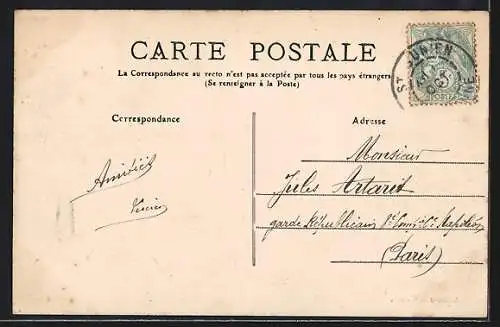 CARTE POSTALE
La Correspondance au recto n'est pas acceptée par tous les pays étrangers
(Se renseigner à la Poste)
ST JUNIEN
Correspondance
Adresse
Monsieur
Jules Artarit
garde Républicain
Napoléon
(Paris)